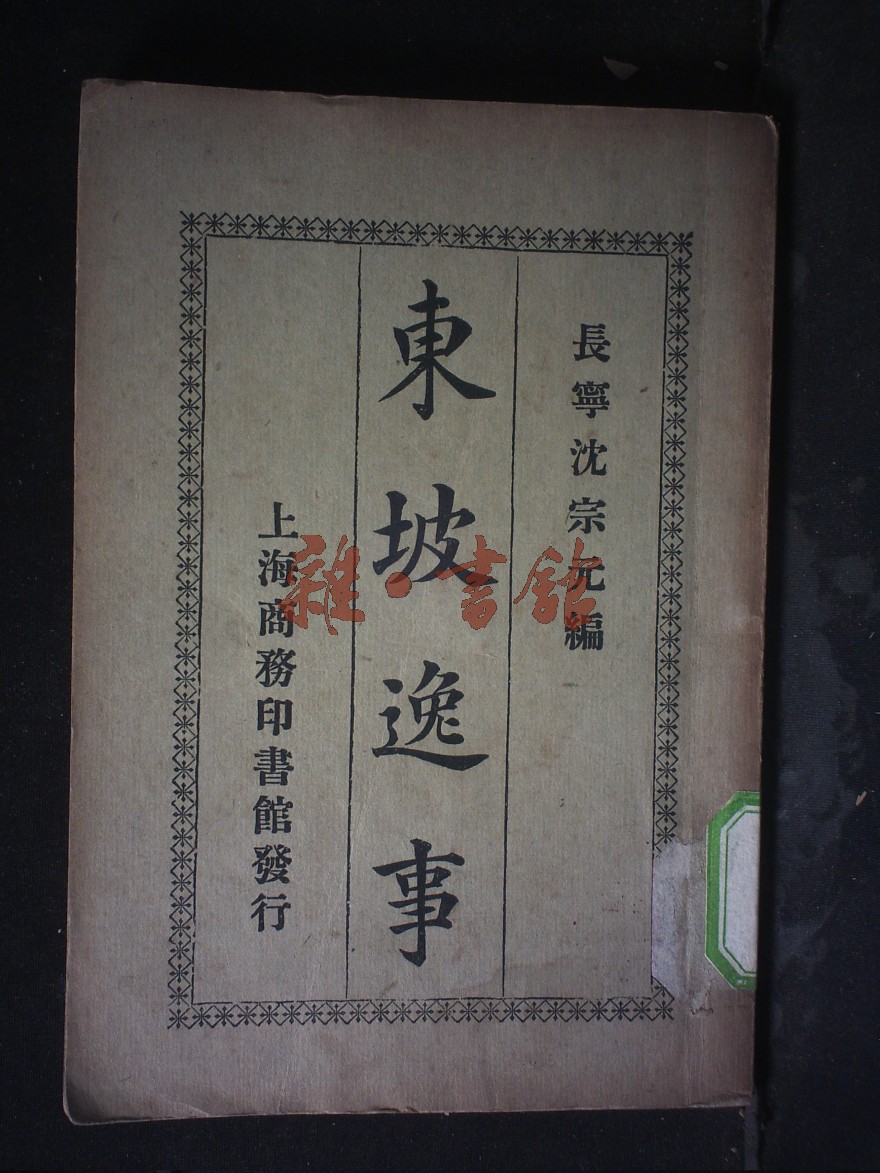 長寧沈宗元編
東坡逸事
上海商務印書館發行
雜·書館